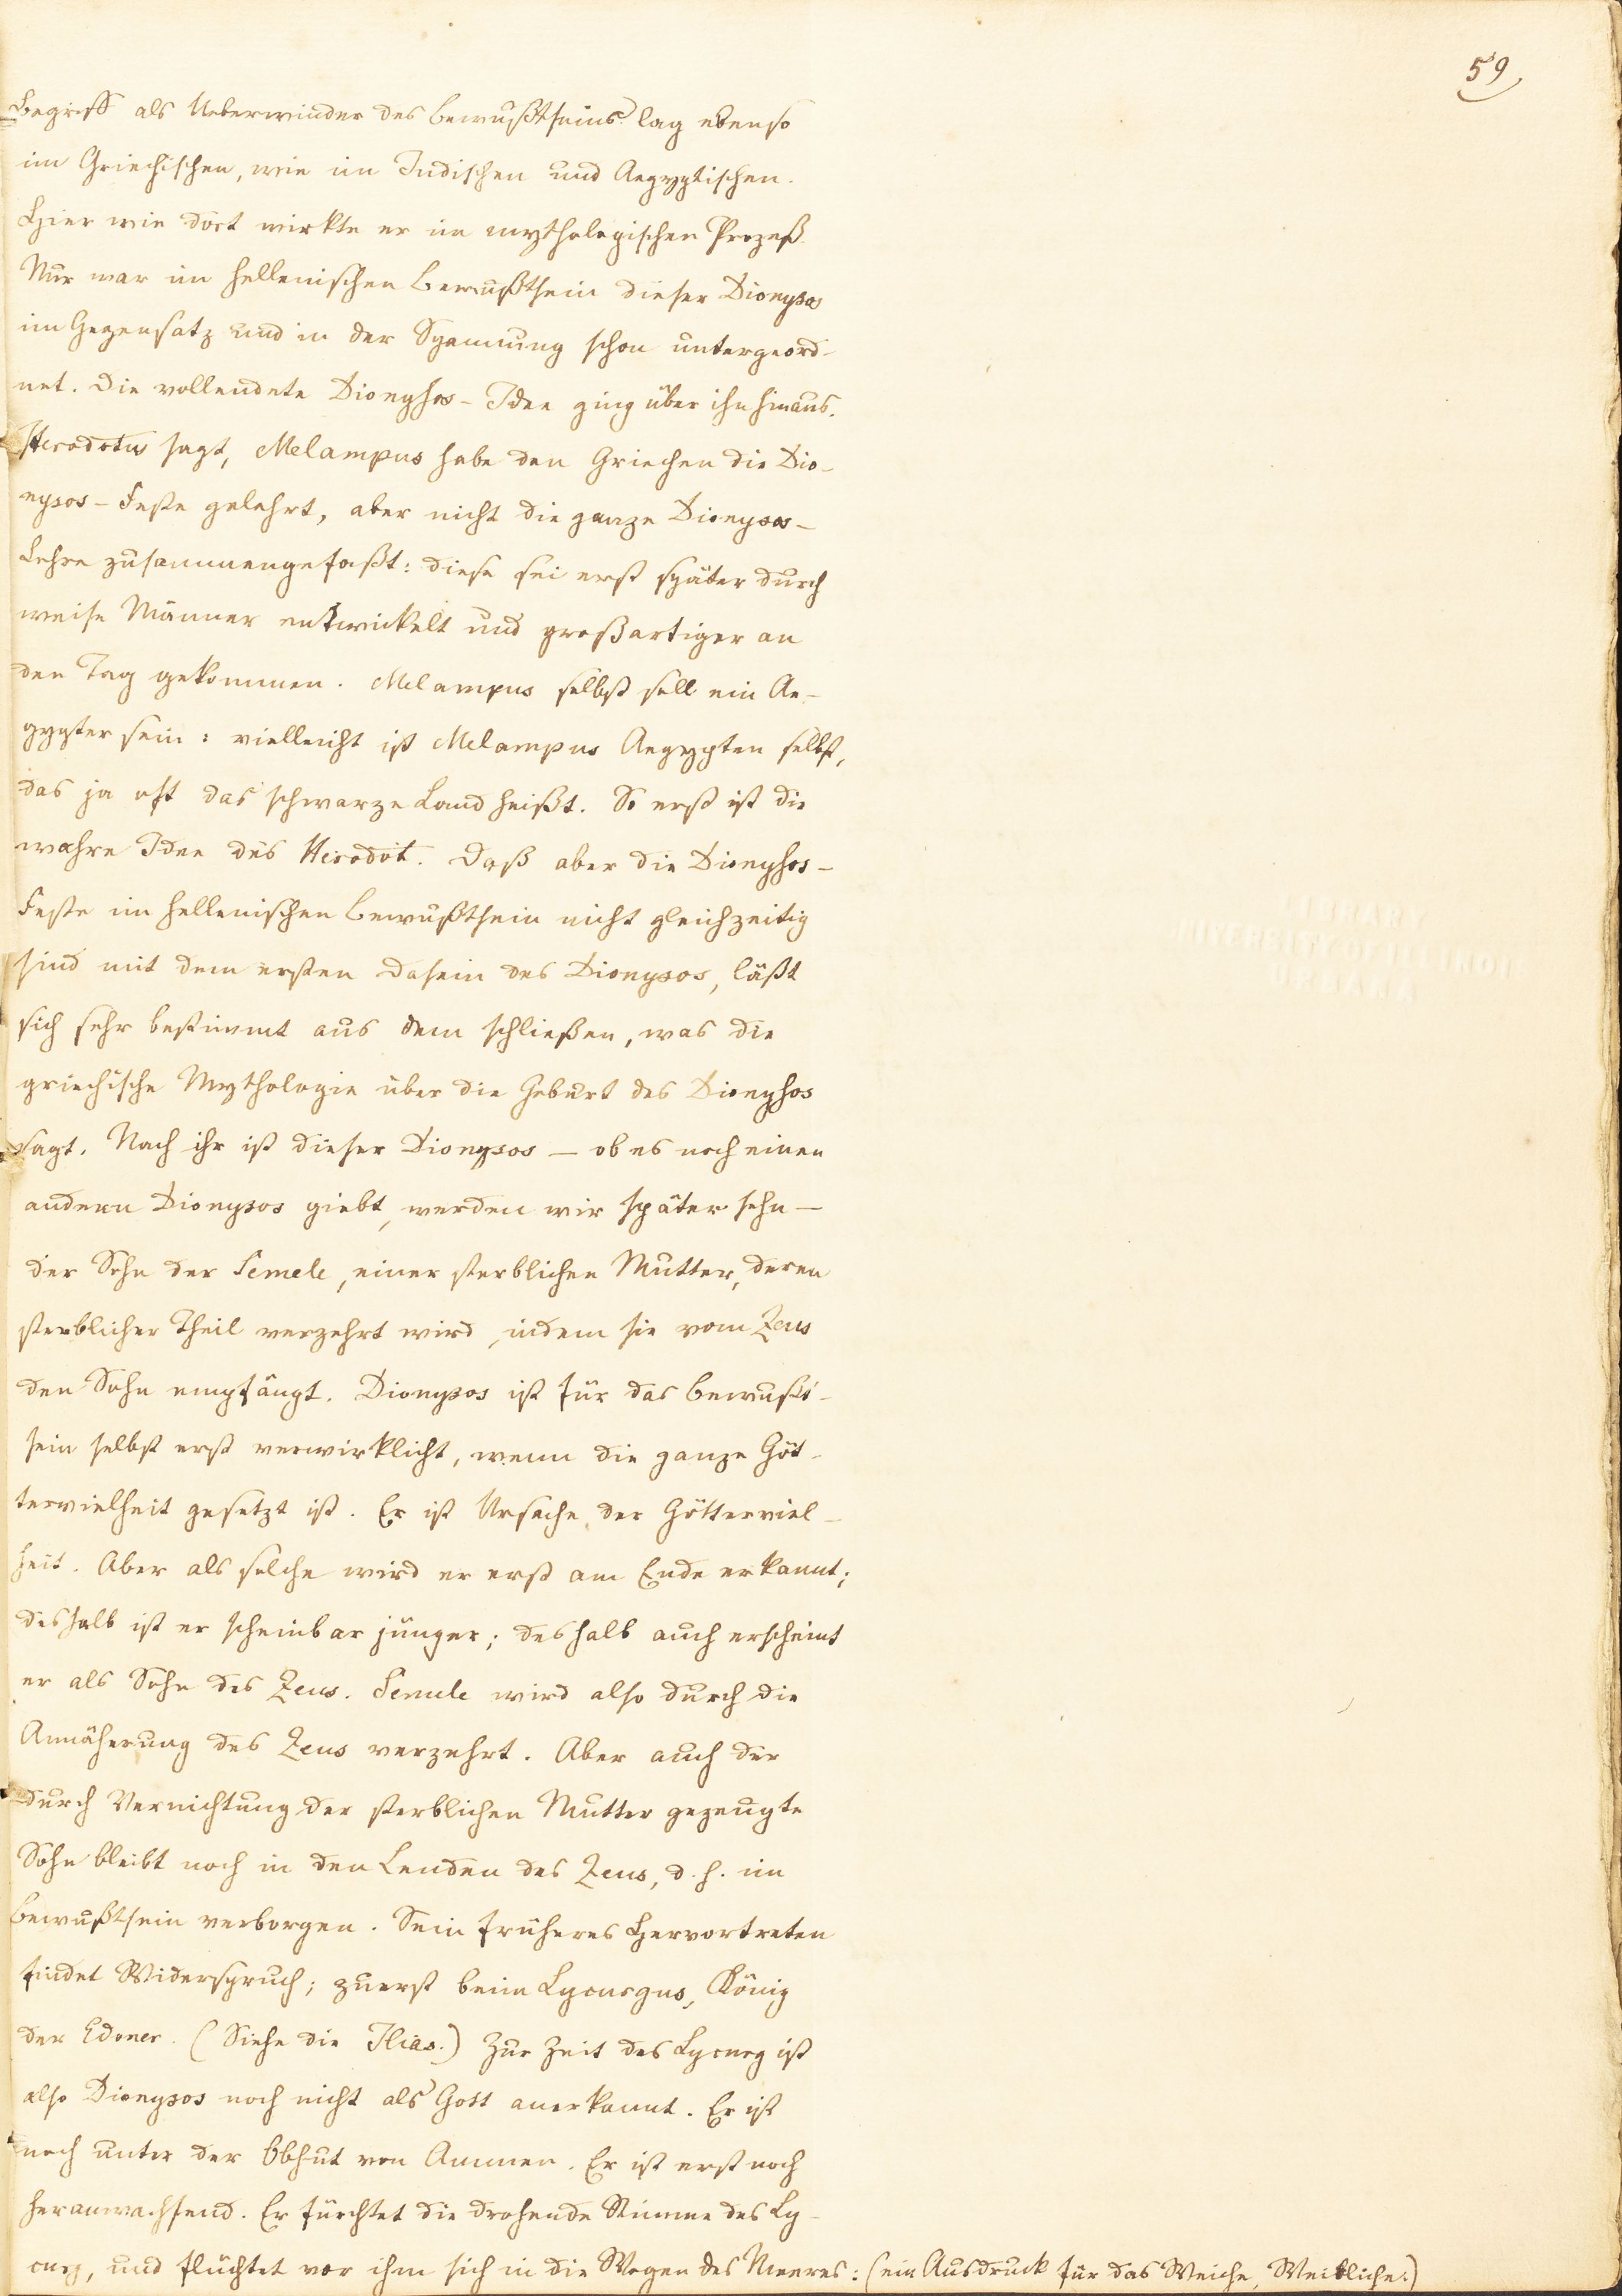 59
Begriff als Ueberwinder des Bewußtseins lag ebenso
im Griechischen, wie im Indischen und Aegyptischen.
Hier wie dort wirkte er im mythologischen Prozeß.
Nur war im hellenischen Bewußtsein dieser Dionysos
im Gegensatz und in der Spannung schon untergeord-
net. Die vollendete Dionysos-Idee ging über ihn hinaus.
Herodotus sagt, Melampus habe den Griechen die Dio-
nysos-Feste gelehrt, aber nicht die ganze Dionysos-
Lehre zusammengefaßt: diese sei erst später durch
weise Männer entwickelt und großartiger an
den Tag gekommen. Melampus selbst soll ein Ae-
gypter sein: vielleicht ist Melampus Aegypten selbst,
das ja oft das schwarze Land heißt. So erst ist die
wahre Idee des Herodot. Daß aber die Dionysos-
Feste im hellenischen Bewußtsein nicht gleichzeitig
sind mit dem ersten Dasein des Dionysos, läßt
sich sehr bestimmt aus dem schließen, was die
griechische Mythologie über die Geburt des Dionysos
sagt. Nach ihr ist dieser Dionysos — ob es noch einen
andern Dionysos giebt, werden wir später sehn —
der Sohn der Semele, einer sterblichen Mutter, deren
sterblicher Theil verzehrt wird, indem sie vom Zeus
den Sohn empfängt. Dionysos ist für das Bewußt-
sein selbst erst verwirklicht, wenn die ganze Göt-
tervielheit gesetzt ist. Er ist Ursache der Götterviel-
heit. Aber als solche wird er erst am Ende erkannt;
deshalb ist er scheinbar jünger; deshalb auch erscheint
er als Sohn des Zeus. Semele wird also durch die
Annäherung des Zeus verzehrt. Aber auch der
durch Vernichtung der sterblichen Mutter gezeugte
Sohn bleibt noch in den Lenden des Zeus, d. h. im
Bewußtsein verborgen. Sein früheres Hervortreten
findet Widerspruch; zuerst beim Lycurgus, König
der Edoner. (Siehe die Ilias.) Zur Zeit des Lycurg ist
also Dionysos noch nicht als Gott anerkannt. Er ist
noch unter der Obhut von Ammen. Er ist erst noch
heranwachsend. Er fürchtet die drohende Stimme des Ly-
curg, und flüchtet vor ihm sich in die Wogen des Meeres: (ein Ausdruck für das Weiche, Weibliche.)